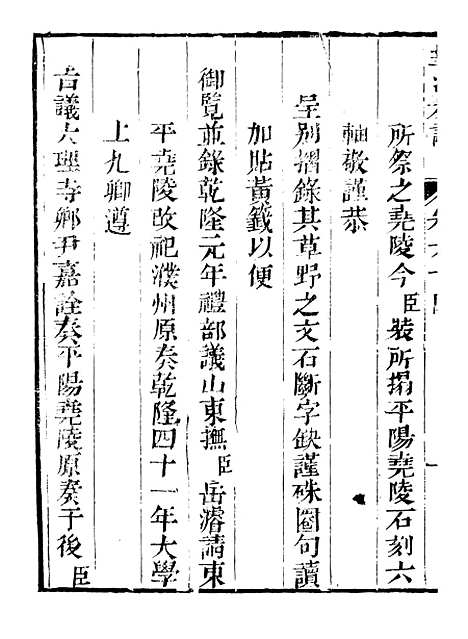 所祭之堯陵今臣裝所搨平陽堯陵石刻六
軸敬謹恭
呈別摺錄其草野之文石斷字缺謹硃圈句讀
加貼黃籤以便
御覽並錄乾隆元年禮部議山東撫臣岳濬請東
平堯陵改祀濮州原奏乾隆四十一年大學
士九卿遵
旨議大理寺卿尹嘉詮奏平陽堯陵原奏于後臣